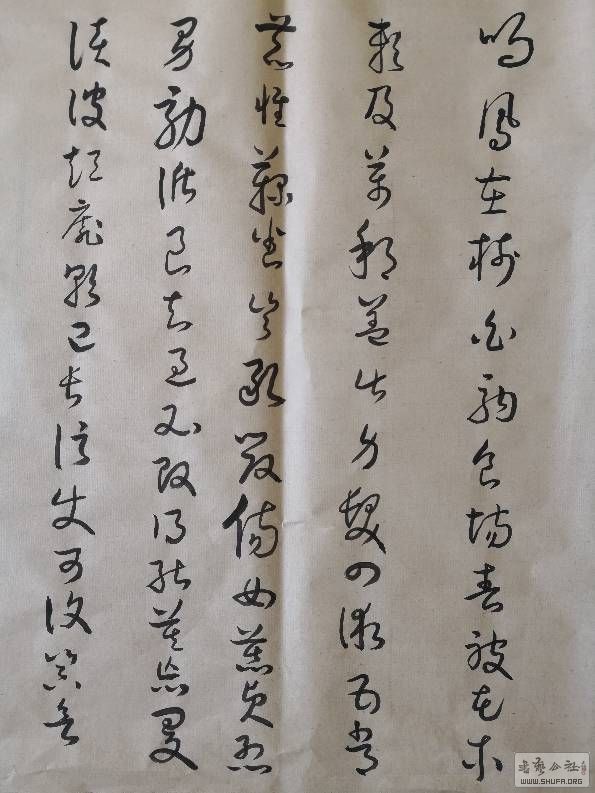 鳴鳳在樹白駒食場被木
賴及萬蓋此身髮四五常
恭惟鞠養豈敢毀傷女慕貞烈
男效良知過必改得能莫忘罔
談彼短靡恃己長信使可覆器
書藝公社
WWW.SHUFA.ORG